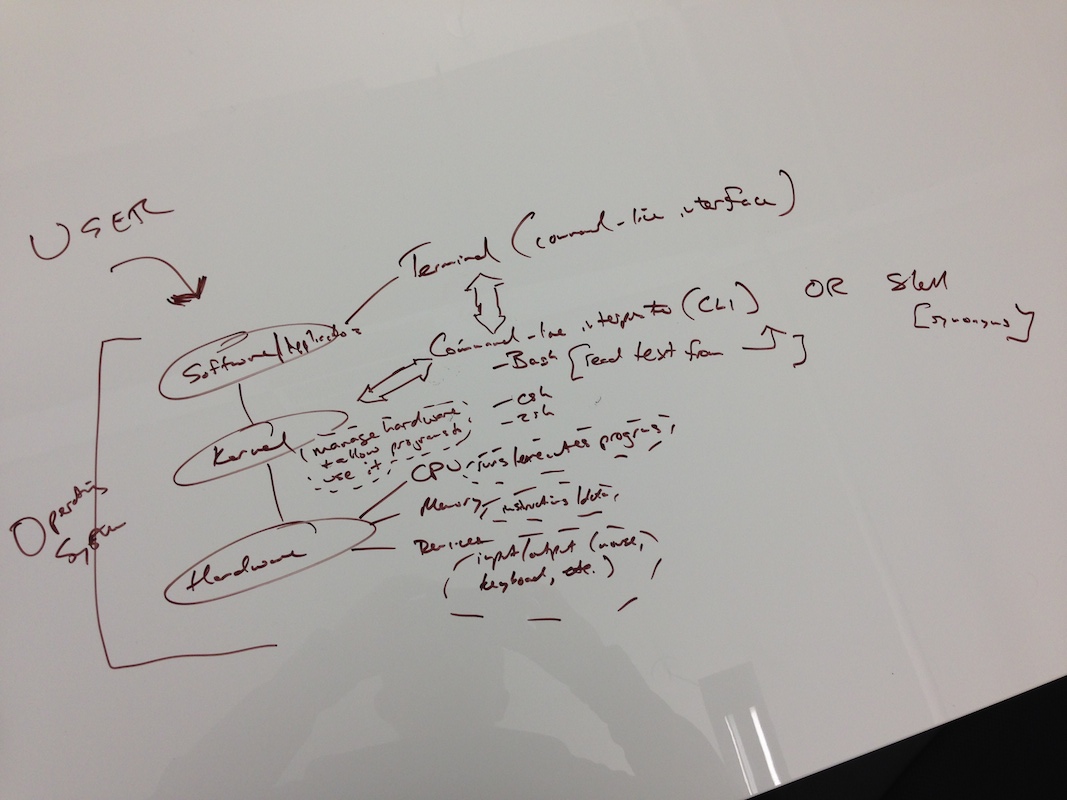 USER
Terminal (command-line interface)
Command-line interpreter (CLI) OR Shell
[synonyms]
- Bash [read text from ]
- csh
- zsh
Software/Application
Kernel (manage hardware
+ allow programs to
use it)
Operating
System
Hardware
CPU - runs/executes programs
Memory - instructions/data
Devices
input/output (mouse,
keyboard, etc.)